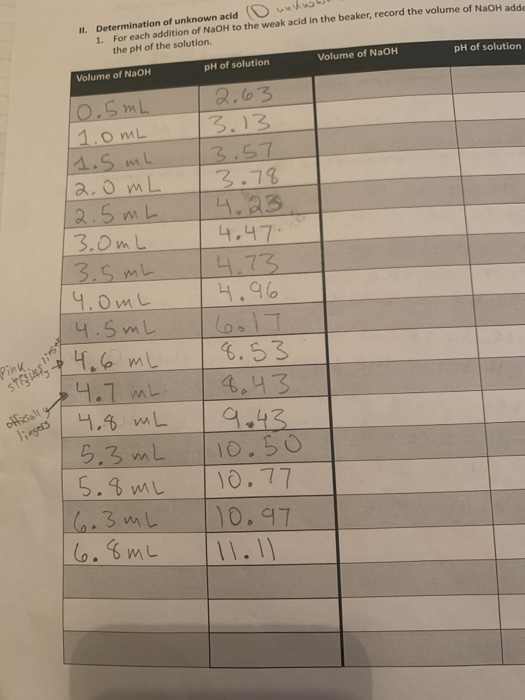 II. Determination of unknown acid (D unknow
1. For each addition of NaOH to the weak acid in the beaker, record the volume of NaOH adde
the pH of the solution.
Volume of NaOH pH of solution Volume of NaOH pH of solution
0.5 mL 2.63
1.0 mL 3.13
1.5 mL 3.57
2.0 mL 3.78
2.5 mL 4.23
3.0 mL 4.47
3.5 mL 4.73
4.0 mL 4.96
4.5 mL 6.17
Pink
4.6 mL 8.53
4.7 mL 8.43
lingers
4.8 mL 9.43
5.3 mL 10.50
5.8 mL 10.77
6.3 mL 10.97
6.8 mL 11.11